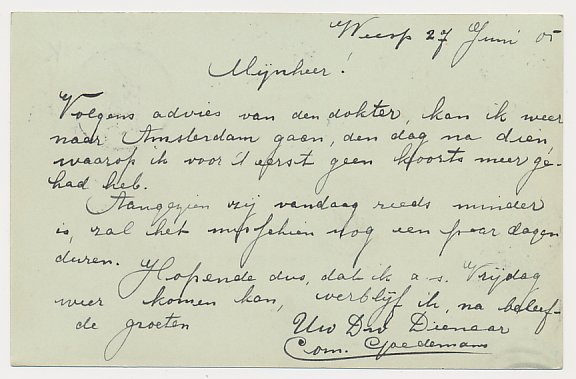 Weesp 27 Juni 05
Mijnheer!
Volgens advies van den dokter, kan ik weer
naar Amsterdam gaan, den dag na dien,
waarop ik voor 't eerst geen koorts meer ge-
had heb.
Aangezien zij vandaag reeds minder
is, zal het misschien nog een paar dagen
duren. Hopende dus, dat ik a. s. Vrijdag
weer komen kan, verblijf ik, na beleef-
de groeten Uw Dw Dienaar
Com. Goedemans